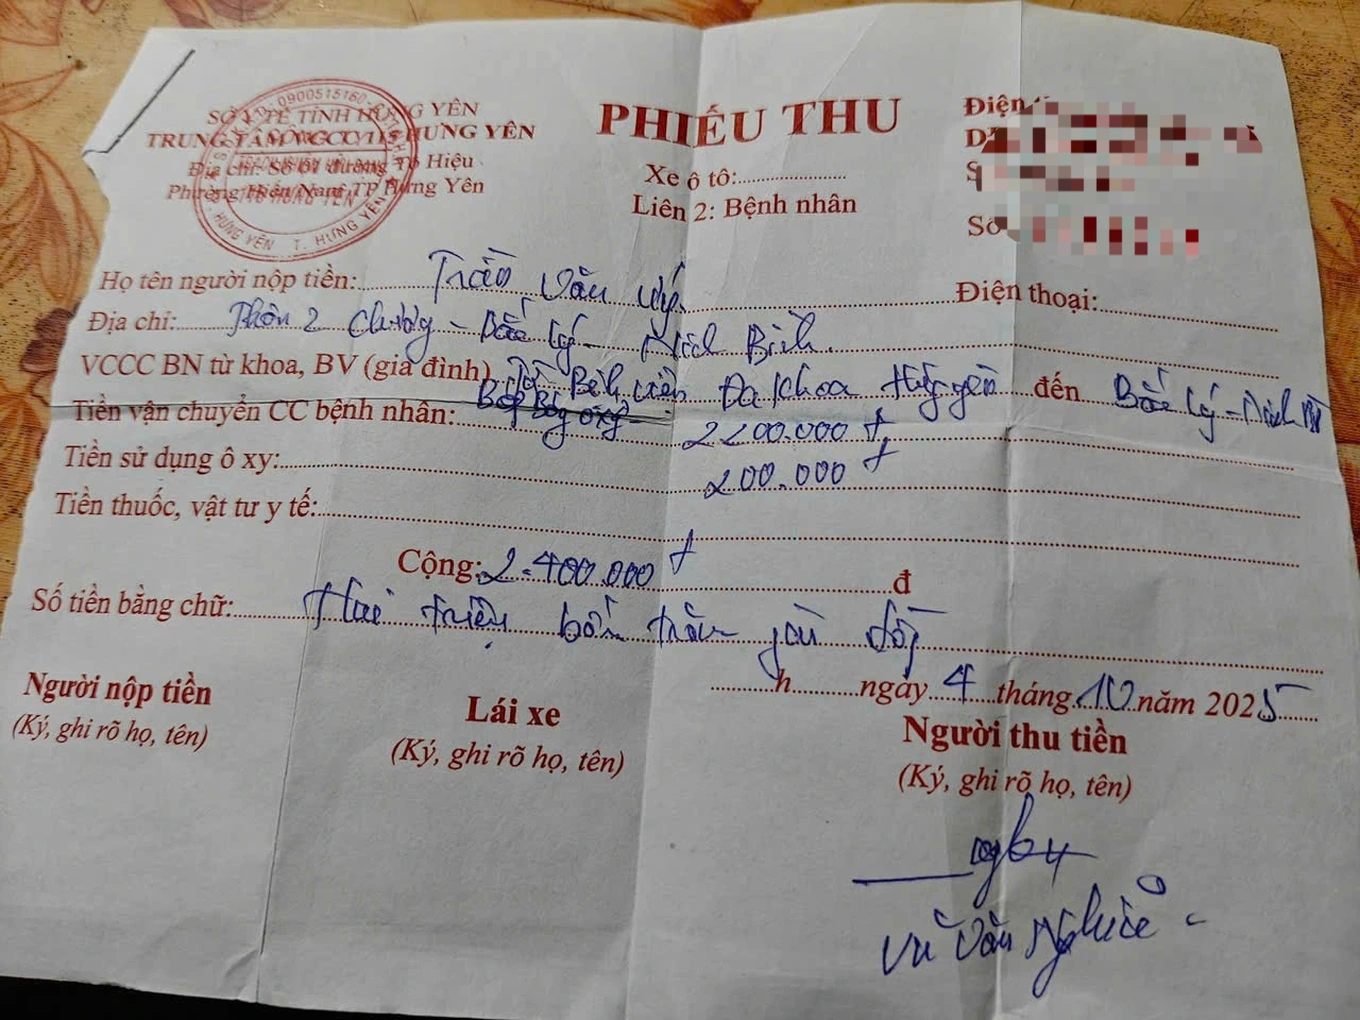 SỞ Y TẾ TỈNH HƯNG YÊN
TRUNG TÂM VCCC 115 HƯNG YÊN
Địa chỉ: Số 01 đường Tô Hiệu
Phường Hiến Nam TP Hưng Yên
0900515160
HƯNG YÊN T. HƯNG YÊN
PHIẾU THU
Xe ô tô:
Liên 2: Bệnh nhân
Điện
Số
Họ tên người nộp tiền: Trần Văn Điện thoại:
Địa chỉ: Thôn 2 - Bắc Lý - Ninh Bình
VCCC BN từ khoa, BV (gia đình) Từ Bệnh viện Đa khoa Hưng yên đến Bắc Lý - Ninh
Tiền vận chuyển CC bệnh nhân: 2200.000 đ
Tiền sử dụng ô xy: 200.000 đ
Tiền thuốc, vật tư y tế:
Cộng: 2.400.000 đ đ
Số tiền bằng chữ: Hai triệu bốn trăm đồng
h ngày 4 tháng 10 năm 2025
Người nộp tiền
(Ký, ghi rõ họ, tên)
Lái xe
(Ký, ghi rõ họ, tên)
Người thu tiền
(Ký, ghi rõ họ, tên)
Vũ Văn